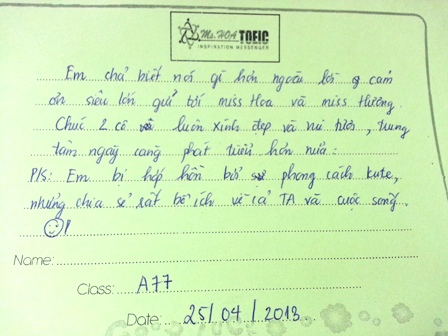 Ms. HOA TOEIC
INSPIRATION MESSENGER
Em chả biết nói gì hơn ngoài lời cảm
ơn siêu lớn gửi tới miss Hoa và miss Hường.
Chúc 2 cô luôn xinh đẹp và vui tươi, trung
tâm ngày càng phát triển hơn nữa.
P/S: Em bị hớp hồn bởi phong cách kute,
những chia sẻ rất bổ ích về cả TA và cuộc sống.
!
Name:
Class: A77
Date: 25/04/2013